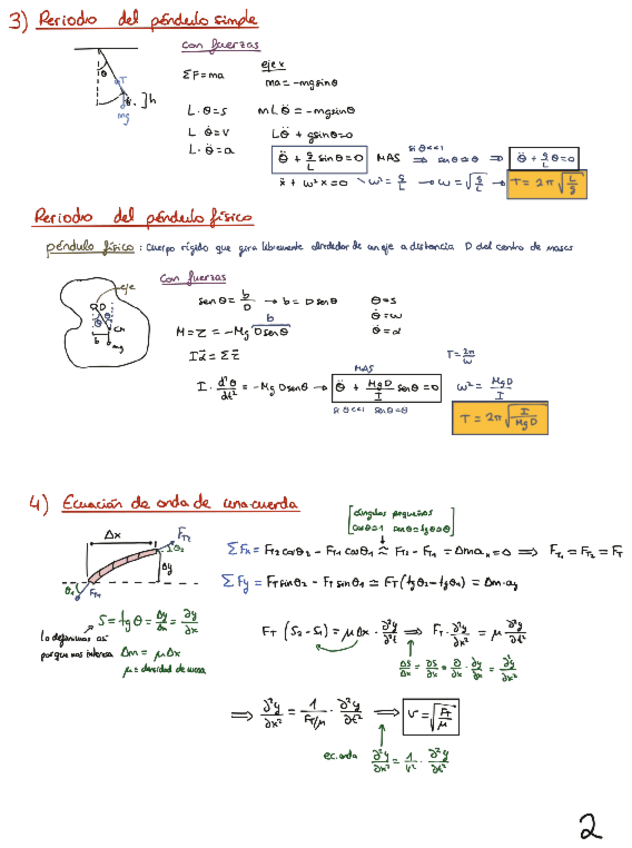 3) Periodo del péndulo simple
con fuerzas
ΣF=ma
eje x
ma=-mg sinθ
L·θ=s
mLθ̈=-mgsinθ
L θ̇=v
Lθ̈ + gsinθ=0
L·θ̈=a
θ T h mg
θ̈ + g/L sinθ=0 MAS sinθ<<1 ⇒ senθ≈θ ⇒ θ̈ + g/L θ=0
ẍ + ω²x=0 ω²= g/L → ω=√(g/L) → T= 2π √(L/g)
Periodo del péndulo físico
péndulo físico : cuerpo rígido que gira libremente alrededor de un eje a distancia D del centro de masas
eje
D θ CM b mg
con fuerzas
senθ= b/D → b= D senθ
θ=s
θ̇=ω
θ̈=α
b
M=Σ = -Mg Dsenθ
Iα⃗=Στ⃗
T= 2π/ω
MAS
I· d²θ/dt² = -Mg Dsenθ → θ̈ + MgD/I senθ=0 ω²= MgD/I
θ<<1 senθ≈θ
T= 2π √(I/MgD)
4) Ecuación de onda de una cuerda
ángulos pequeños
cosθ≈1 senθ≈tgθ≈θ
Δx FT2 θ2 Δy θ1 FT1
ΣFx= FT2 cosθ2 - FT1 cosθ1 ≈ FT2 - FT1 = Δm ax=0 ⇒ FT1=FT2=FT
ΣFy = FT sinθ2 - FT sinθ1 ≃ FT(tgθ2-tgθ1) = Δm·ay
S=tgθ= Δy/Δx = ∂y/∂x
lo definimos así
porque nos interesa Δm= μΔx
μ= densidad de masa
FT (S2-S1)= μΔx· ∂²y/∂²t ⇒ FT· ∂²y/∂x² = μ ∂²y/∂t²
ΔS/Δx = ∂S/∂x = ∂/∂x · ∂y/∂x = ∂²y/∂x²
⇒ ∂²y/∂x² = 1/(FT/μ) · ∂²y/∂t² ⇒ v=√(FT/μ)
ec.onda ∂²y/∂x² = 1/v² · ∂²y/∂t²
2